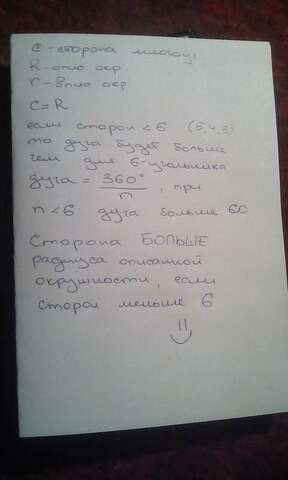 c - сторона многоуг
R - опис окр.
r - впис окр
C = R
если сторон < 6 (5,4,3)
то дуга будет больше
чем для 6-угольника
дуга = 360°/n, при
n < 6 дуга больше 60
Сторона БОЛЬШЕ
радиуса описанной
окружности, если
сторон меньше 6